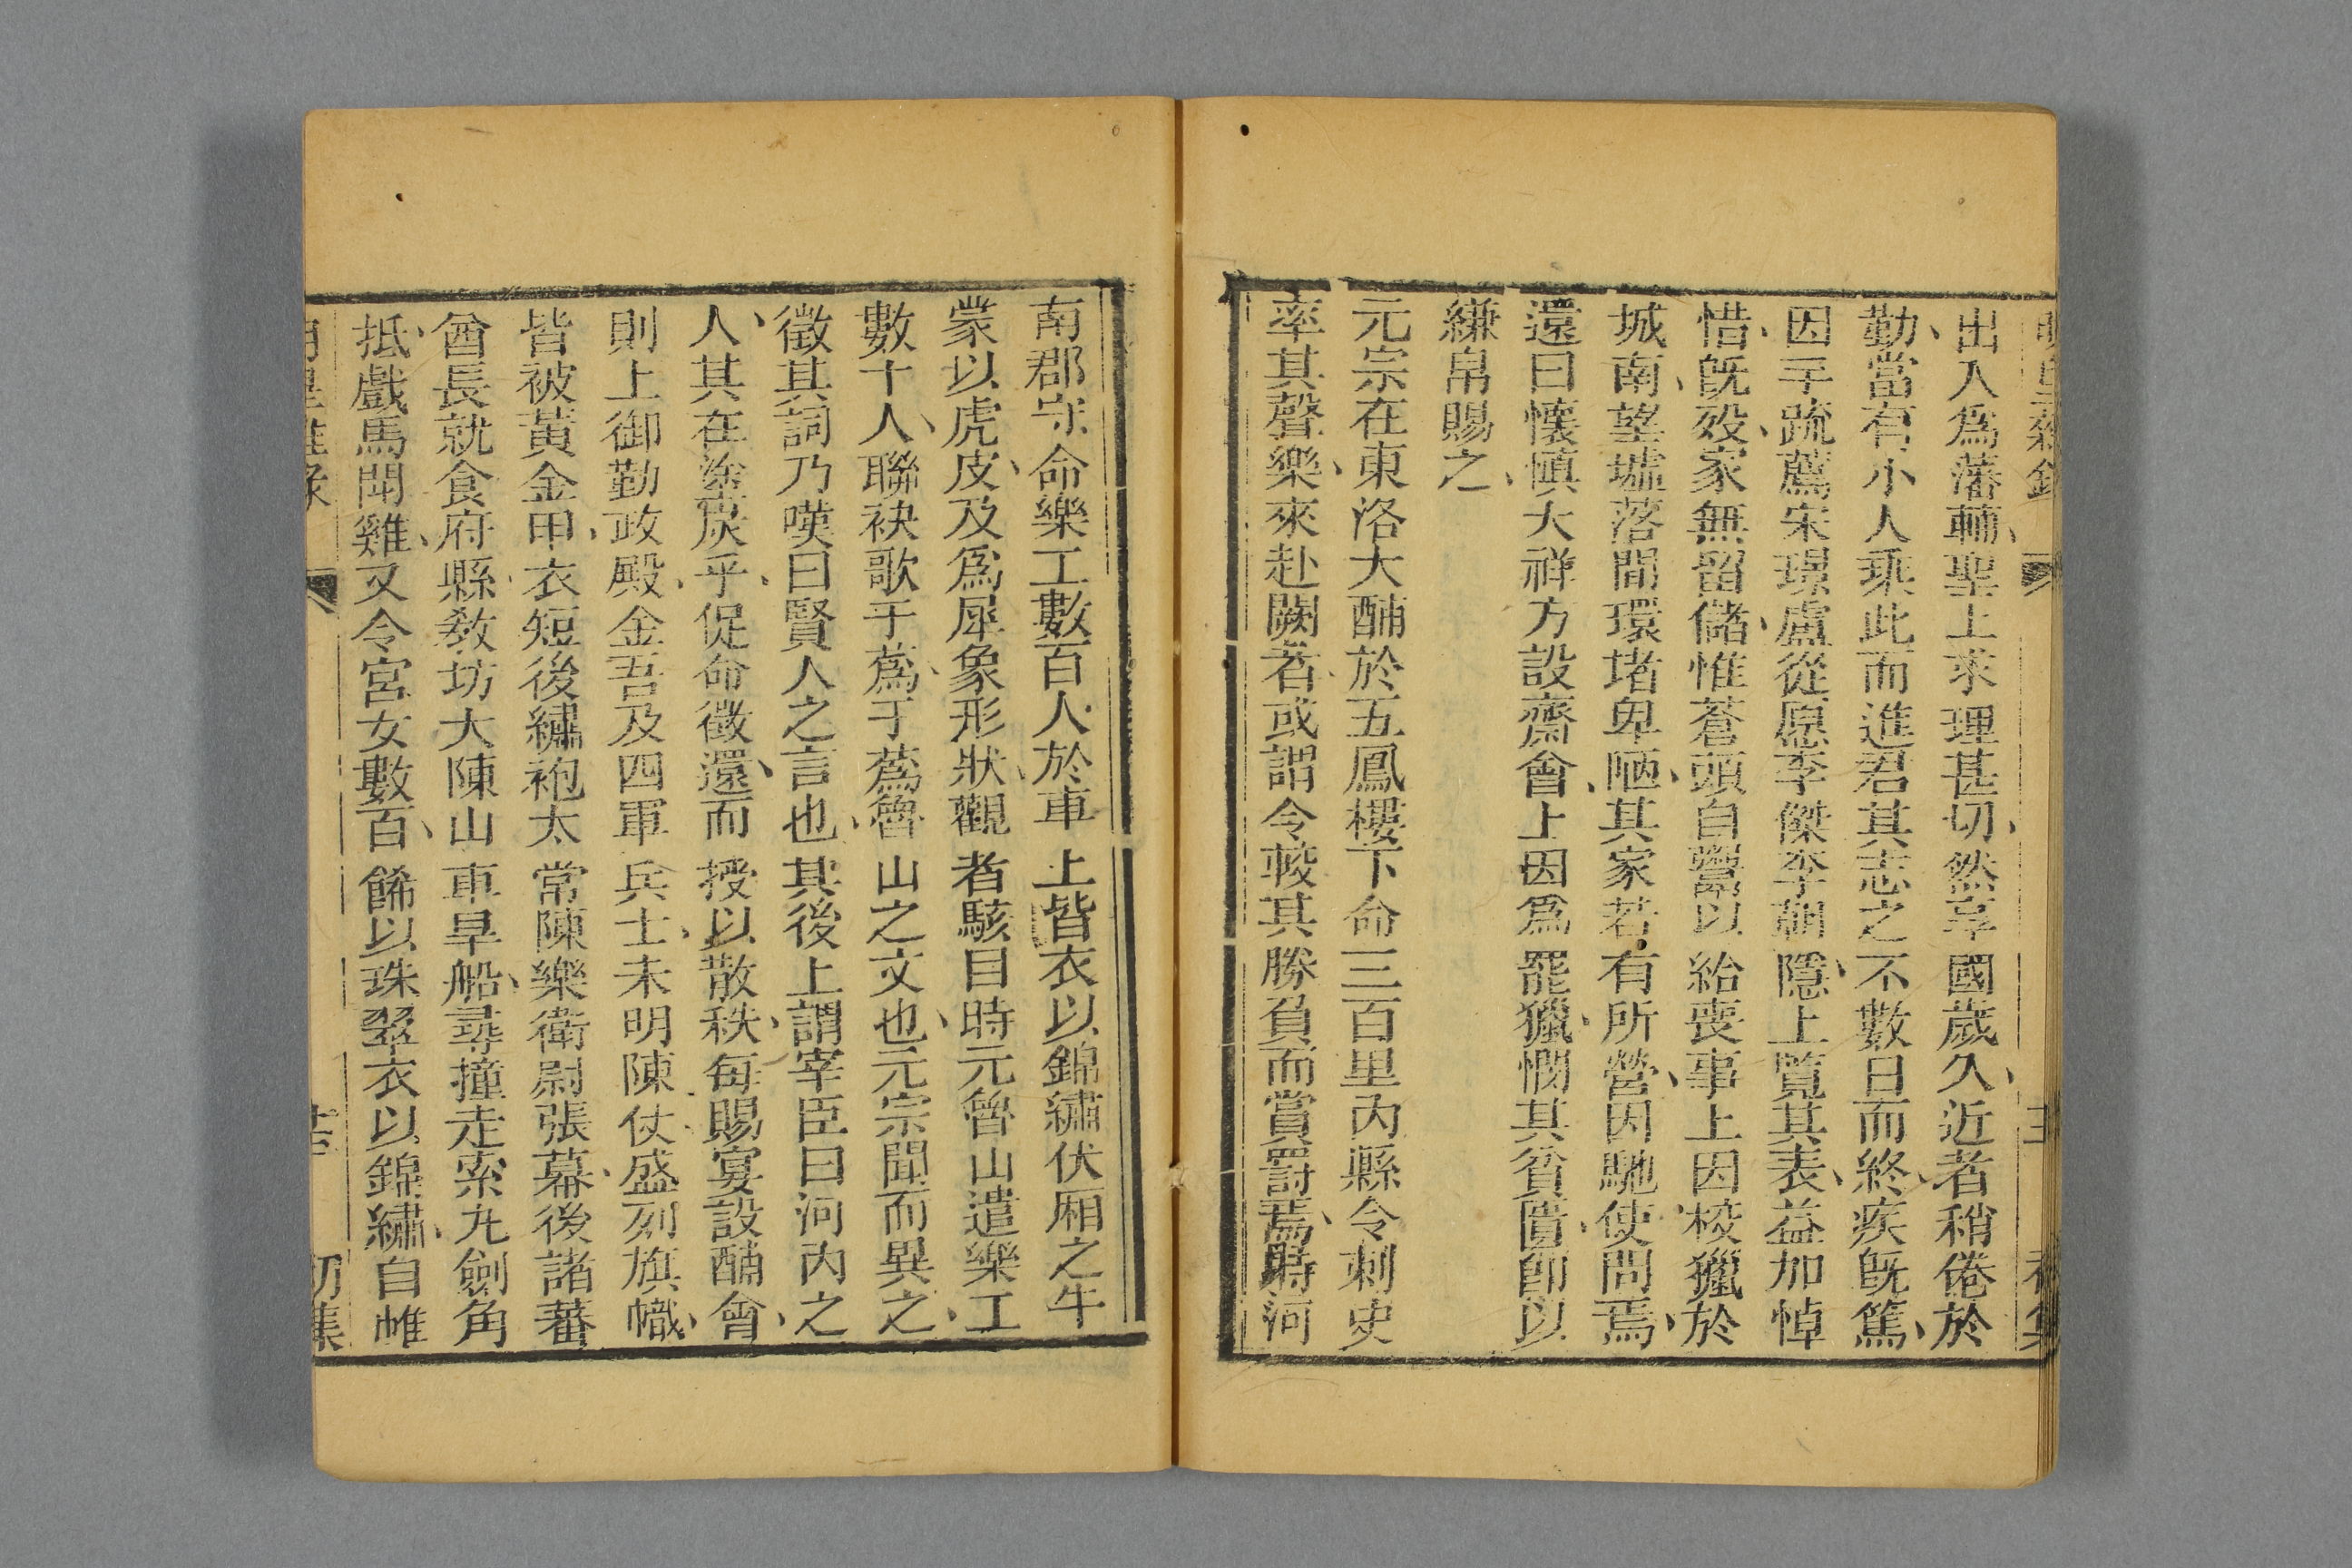 出入爲藩輔聖上求理甚切然享國歲久近者稍倦於
勤當有小人乘此而進君其志之不數日而終疾旣篤
因手疏薦宋璟盧從愿李傑李朝隱上覽其表益加悼
惜旣歿家無留儲惟蒼頭自鬻以給喪事上因校獵於
城南望墟落間環堵卑陋其家若有所營因馳使問焉
還曰懷愼大祥方設齋會上因爲罷獵憫其貧匱卽以
縑帛賜之
元宗在東洛大酺於五鳳樓下命三百里內縣令刺史
率其聲樂來赴闕者或謂令較其勝負而賞罸焉時河
南郡守命樂工數百人於車上皆衣以錦繡伏厢之牛
蒙以虎皮及爲犀象形狀觀者駭目時元魯山遣樂工
數十人聯袂歌于蔿于蔿魯山之文也元宗聞而異之
徵其詞乃嘆曰賢人之言也其後上謂宰臣曰河內之
人其在塗炭乎促命徵還而授以散秩每賜宴設酺會
則上御勤政殿金吾及四軍兵士未明陳仗盛列旗幟
皆被黃金甲衣短後繡袍太常陳樂衛尉張幕後諸蕃
酋長就食府縣敎坊大陳山車旱船尋撞走索丸劍角
抵戲馬鬪雞又令宮女數百餙以珠翠衣以錦繡自帷
明皇雜錄 十三 初集